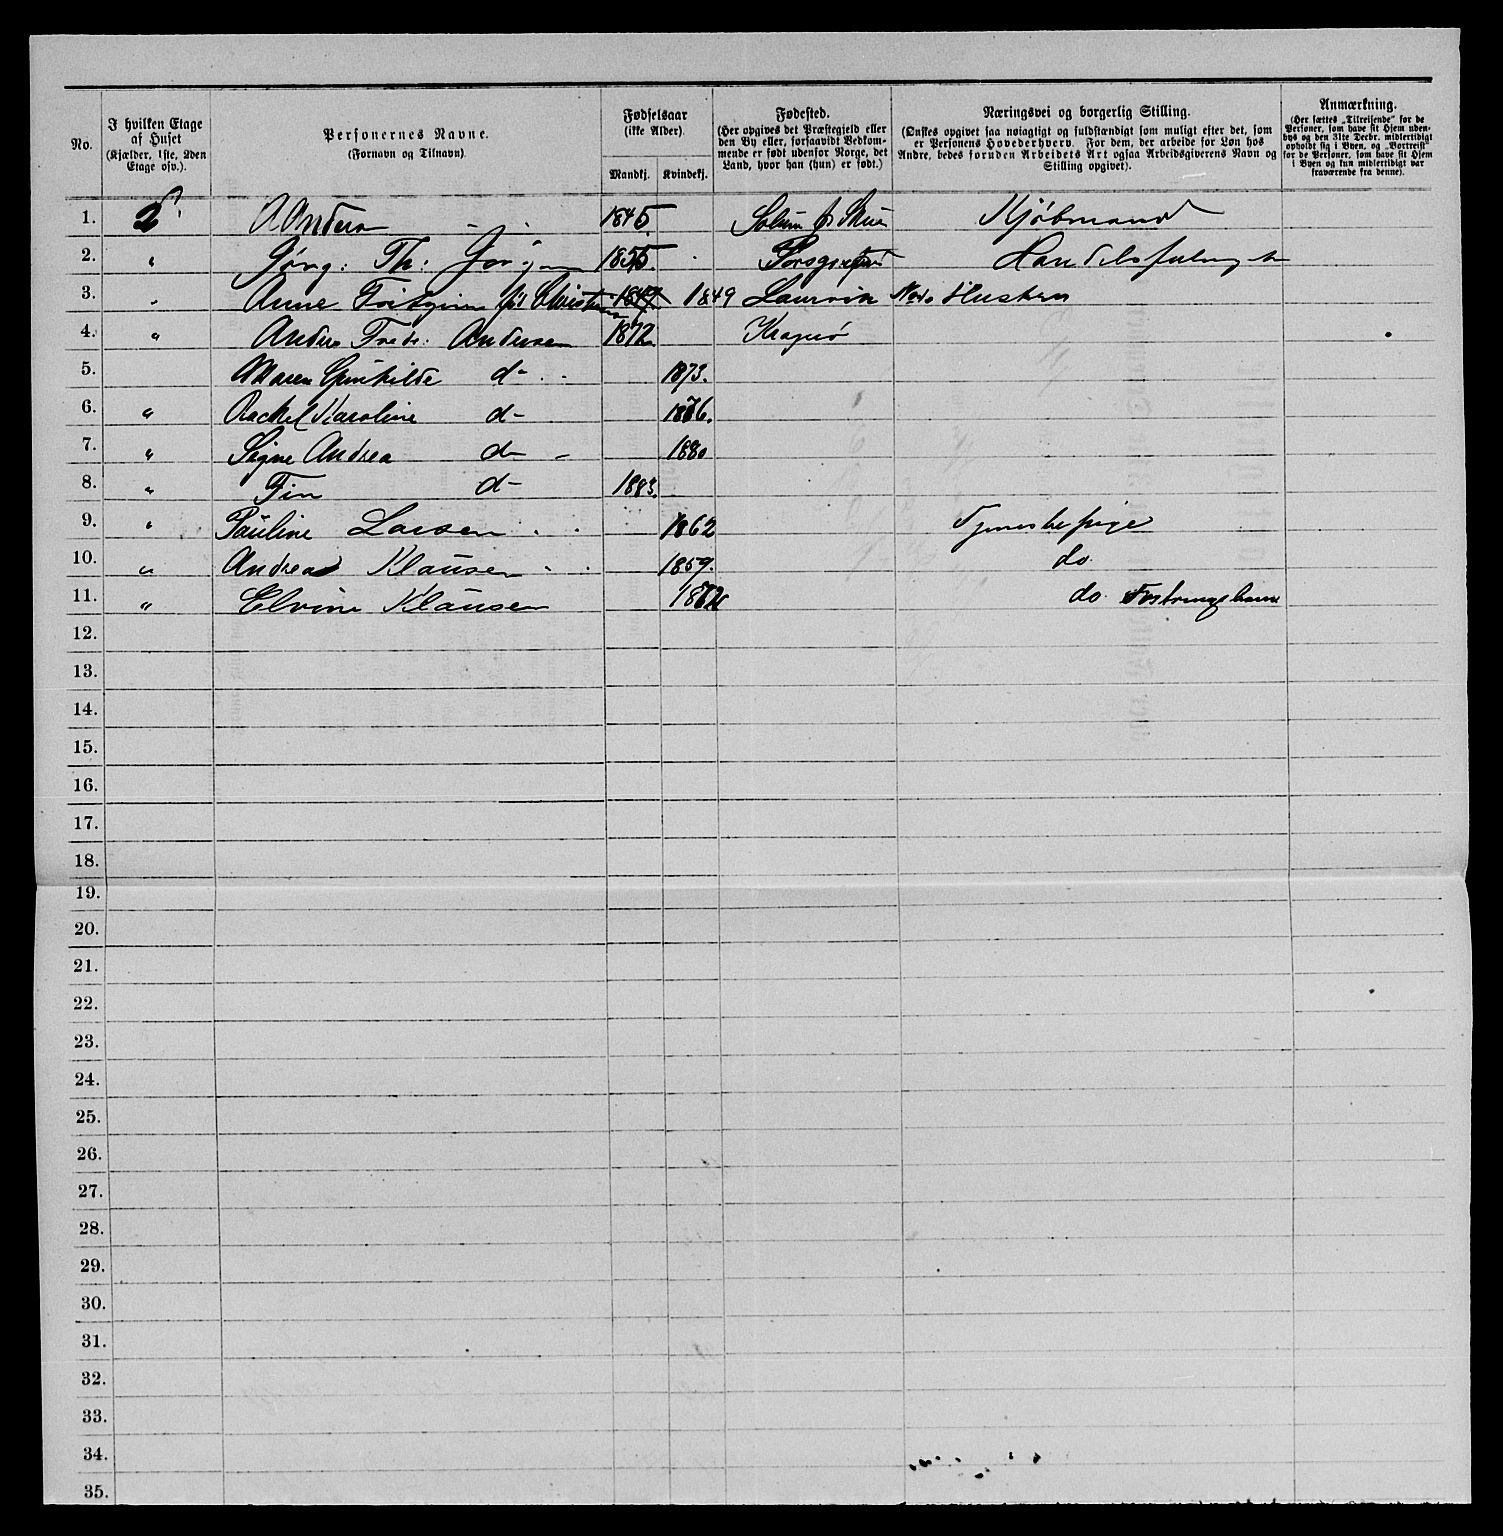 No.
I hvilken Etage af Huset (Kjælder, 1ste, 2den Etage osv.).
Personernes Navne. (Fornavn og Tilnavn)
Fødselsaar (ikke Alder).
Mandkj. Kvindekj.
Fødested. (Her opgives det Præstegjeld eller den By eller, forsaavidt Vedkommende er født udenfor Norge, det Land, hvor han (hun) er født.)
Næringsvei og borgerlig Stilling. (Ønskes opgivet saa nøiagtigt og fuldstændigt som muligt efter det, som er Personens Hovederhverv. For dem, der arbeide for Løn hos Andre, bedes foruden Arbeidets Art ogsaa Arbeidsgiverens Navn og Stilling opgivet).
Anmærkning. (Her sættes „Tilreisende“ for de Personer, som have sit Hjem udenbys og den 31te Decbr. midlertidigt opholdt sig i Byen, og „Bortreist“ for de Personer, som have sit Hjem i Byen og kun midlertidigt var fraværende fra denne).
1. 2 1845. Solum Kjøbmand
2. " Jørg: Th: 1855.
3. " Anne 1849 1849 Laurvik Hustru
4. " Anders Fredr: Andersen 1872. Kragerø
5. Maren Gunhilde do 1873.
6. " Rachel Karoline do 1876.
7. " Signe Andrea do 1880
8. " Fin do 1883.
9. " Pauline Larsen 1862 Tjenestepige
10. " Andrea Klausen 1859. do
11. " Elvine Klausen do
12.
13.
14.
15.
16.
17.
18.
19.
20.
21.
22.
23.
24.
25.
26.
27.
28.
29.
30.
31.
32.
33.
34.
35.